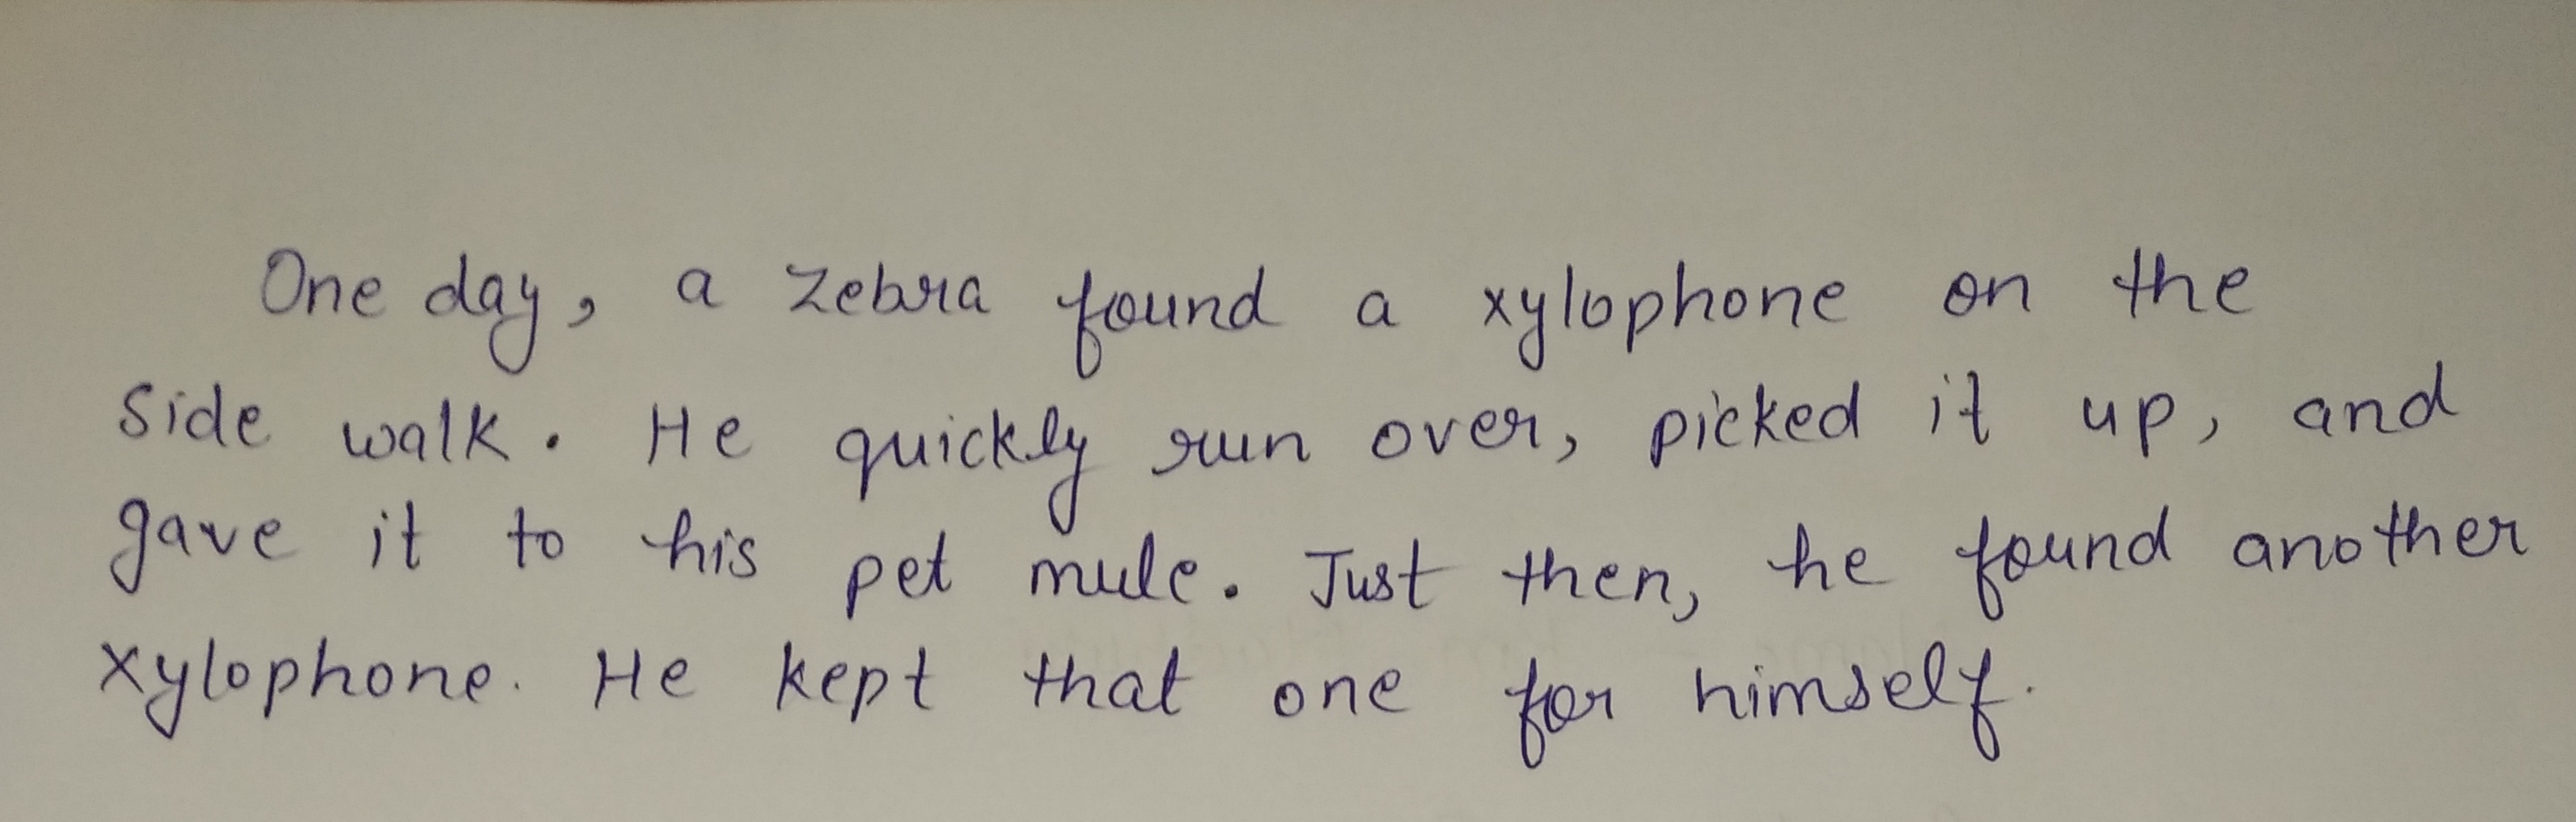 One day, a zebra found a xylophone on the
side walk. He quickly run over, picked it up, and
gave it to his pet mule. Just then, he found another
xylophone. He kept that one for himself.